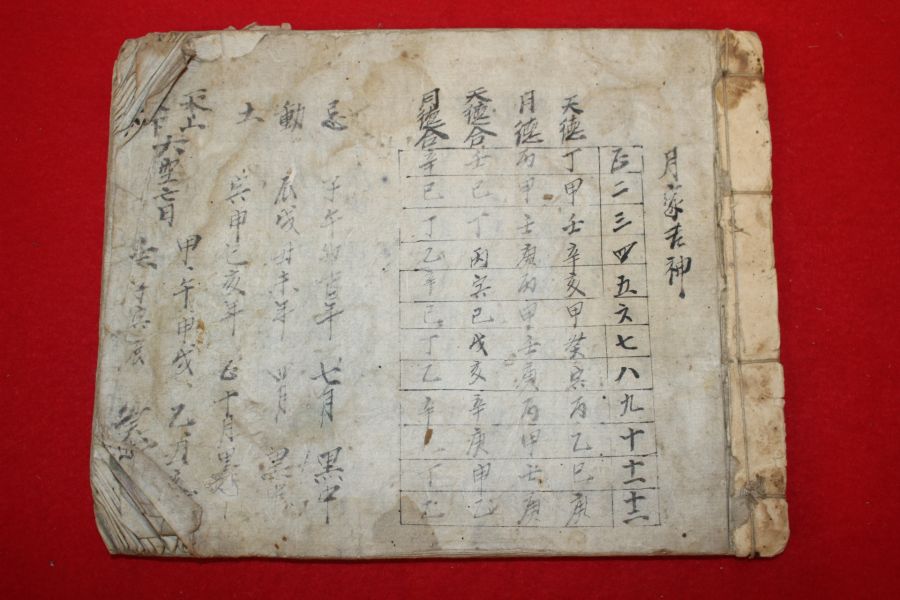 月家吉神
正 二 三 四 五 六 七 八 九 十 十一 十二
天德 丁 甲 壬 辛 亥 甲 癸 寅 丙 乙 巳 庚
月德 丙 甲 壬 庚 丙 甲 壬 庚 丙 甲 壬 庚
天德合 壬 巳 丁 丙 寅 己 戊 亥 辛 庚 申 乙
月德合 辛 己 丁 乙 辛 己 丁 乙 辛 丁 乙
忌 子午卯酉年 七月 黑中
動 辰戌丑未年 四月
土 寅申巳亥年 正十月
六空亡日
甲 午申戌 乙